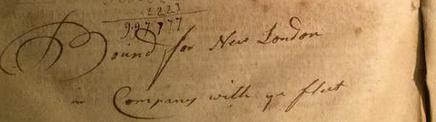 2223
997777
Bound for New London
in Company with ye fleet